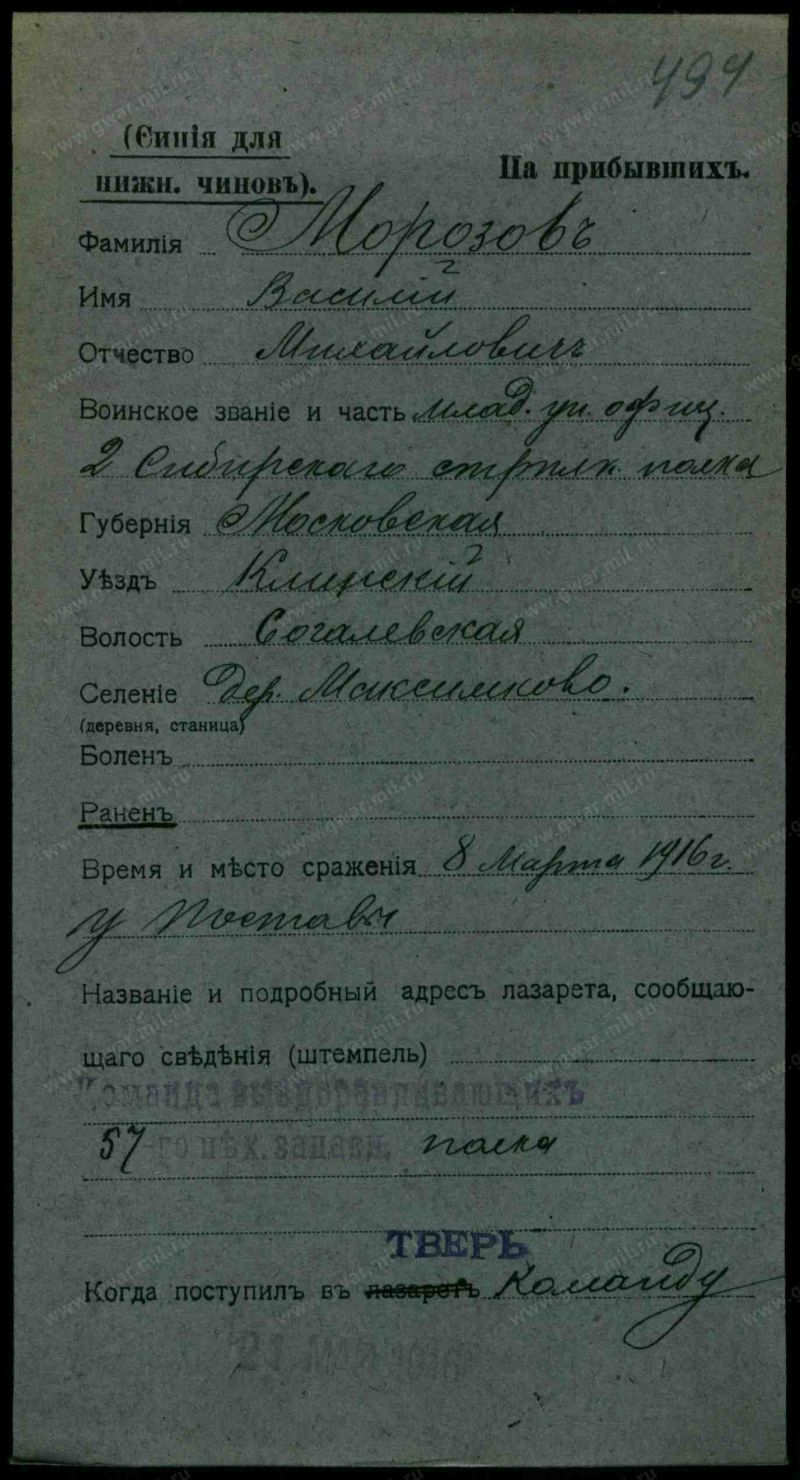 494
(Синія для
нижн. чиновъ).
На прибывшихъ.
Фамилія Морозовъ
Имя Василій
Отчество Михайловичъ
Воинское званіе и часть млад. ун. офиц.
2 Сибирскаго стрѣлк. полка
Губернія Московская
Уѣздъ Клинскій
Волость Согалевская
Селеніе дер. Максимково.
(деревня, станица)
Боленъ
Раненъ
Время и мѣсто сраженія 8 Марта 1916 г.
у Поставы
Названіе и подробный адресъ лазарета, сообщаю-
щаго свѣдѣнія (штемпель)
Команда выздоравливающихъ
57-го пѣх. запасн. полка
ТВЕРЬ
Когда поступилъ въ лазаретъ Команду
www.gwar.mil.ru